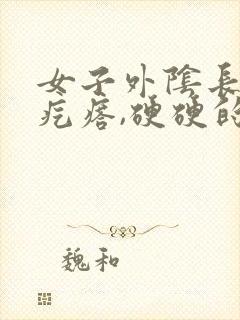 女子外陰長
疙瘩,硬硬的
魏和